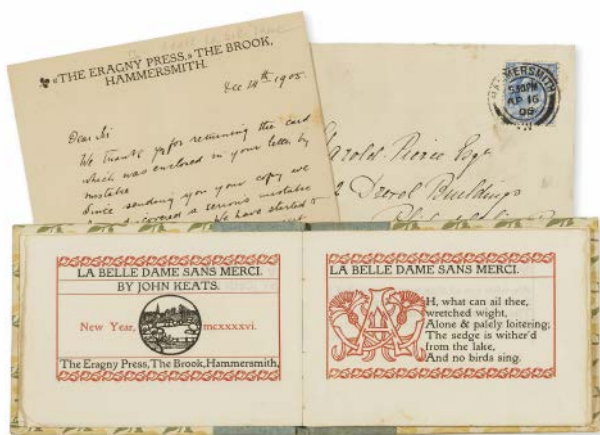 «THE ERAGNY PRESS,» THE BROOK,
HAMMERSMITH.
Dec 14th 1905
Dear Sir
We thank you for returning the card
which was enclosed in your letter by
mistake
Since sending you your copy we
discovered a serious mistake
We have started to
HAMMERSMITH
AP 16
06
Harold Peirce Esqr
Drexel Buildings
LA BELLE DAME SANS MERCI.
BY JOHN KEATS.
New Year, mcxxxxvi.
The Eragny Press, The Brook, Hammersmith.
LA BELLE DAME SANS MERCI.
AH, what can ail thee,
wretched wight,
Alone & palely loitering;
The sedge is wither'd
from the lake,
And no birds sing.